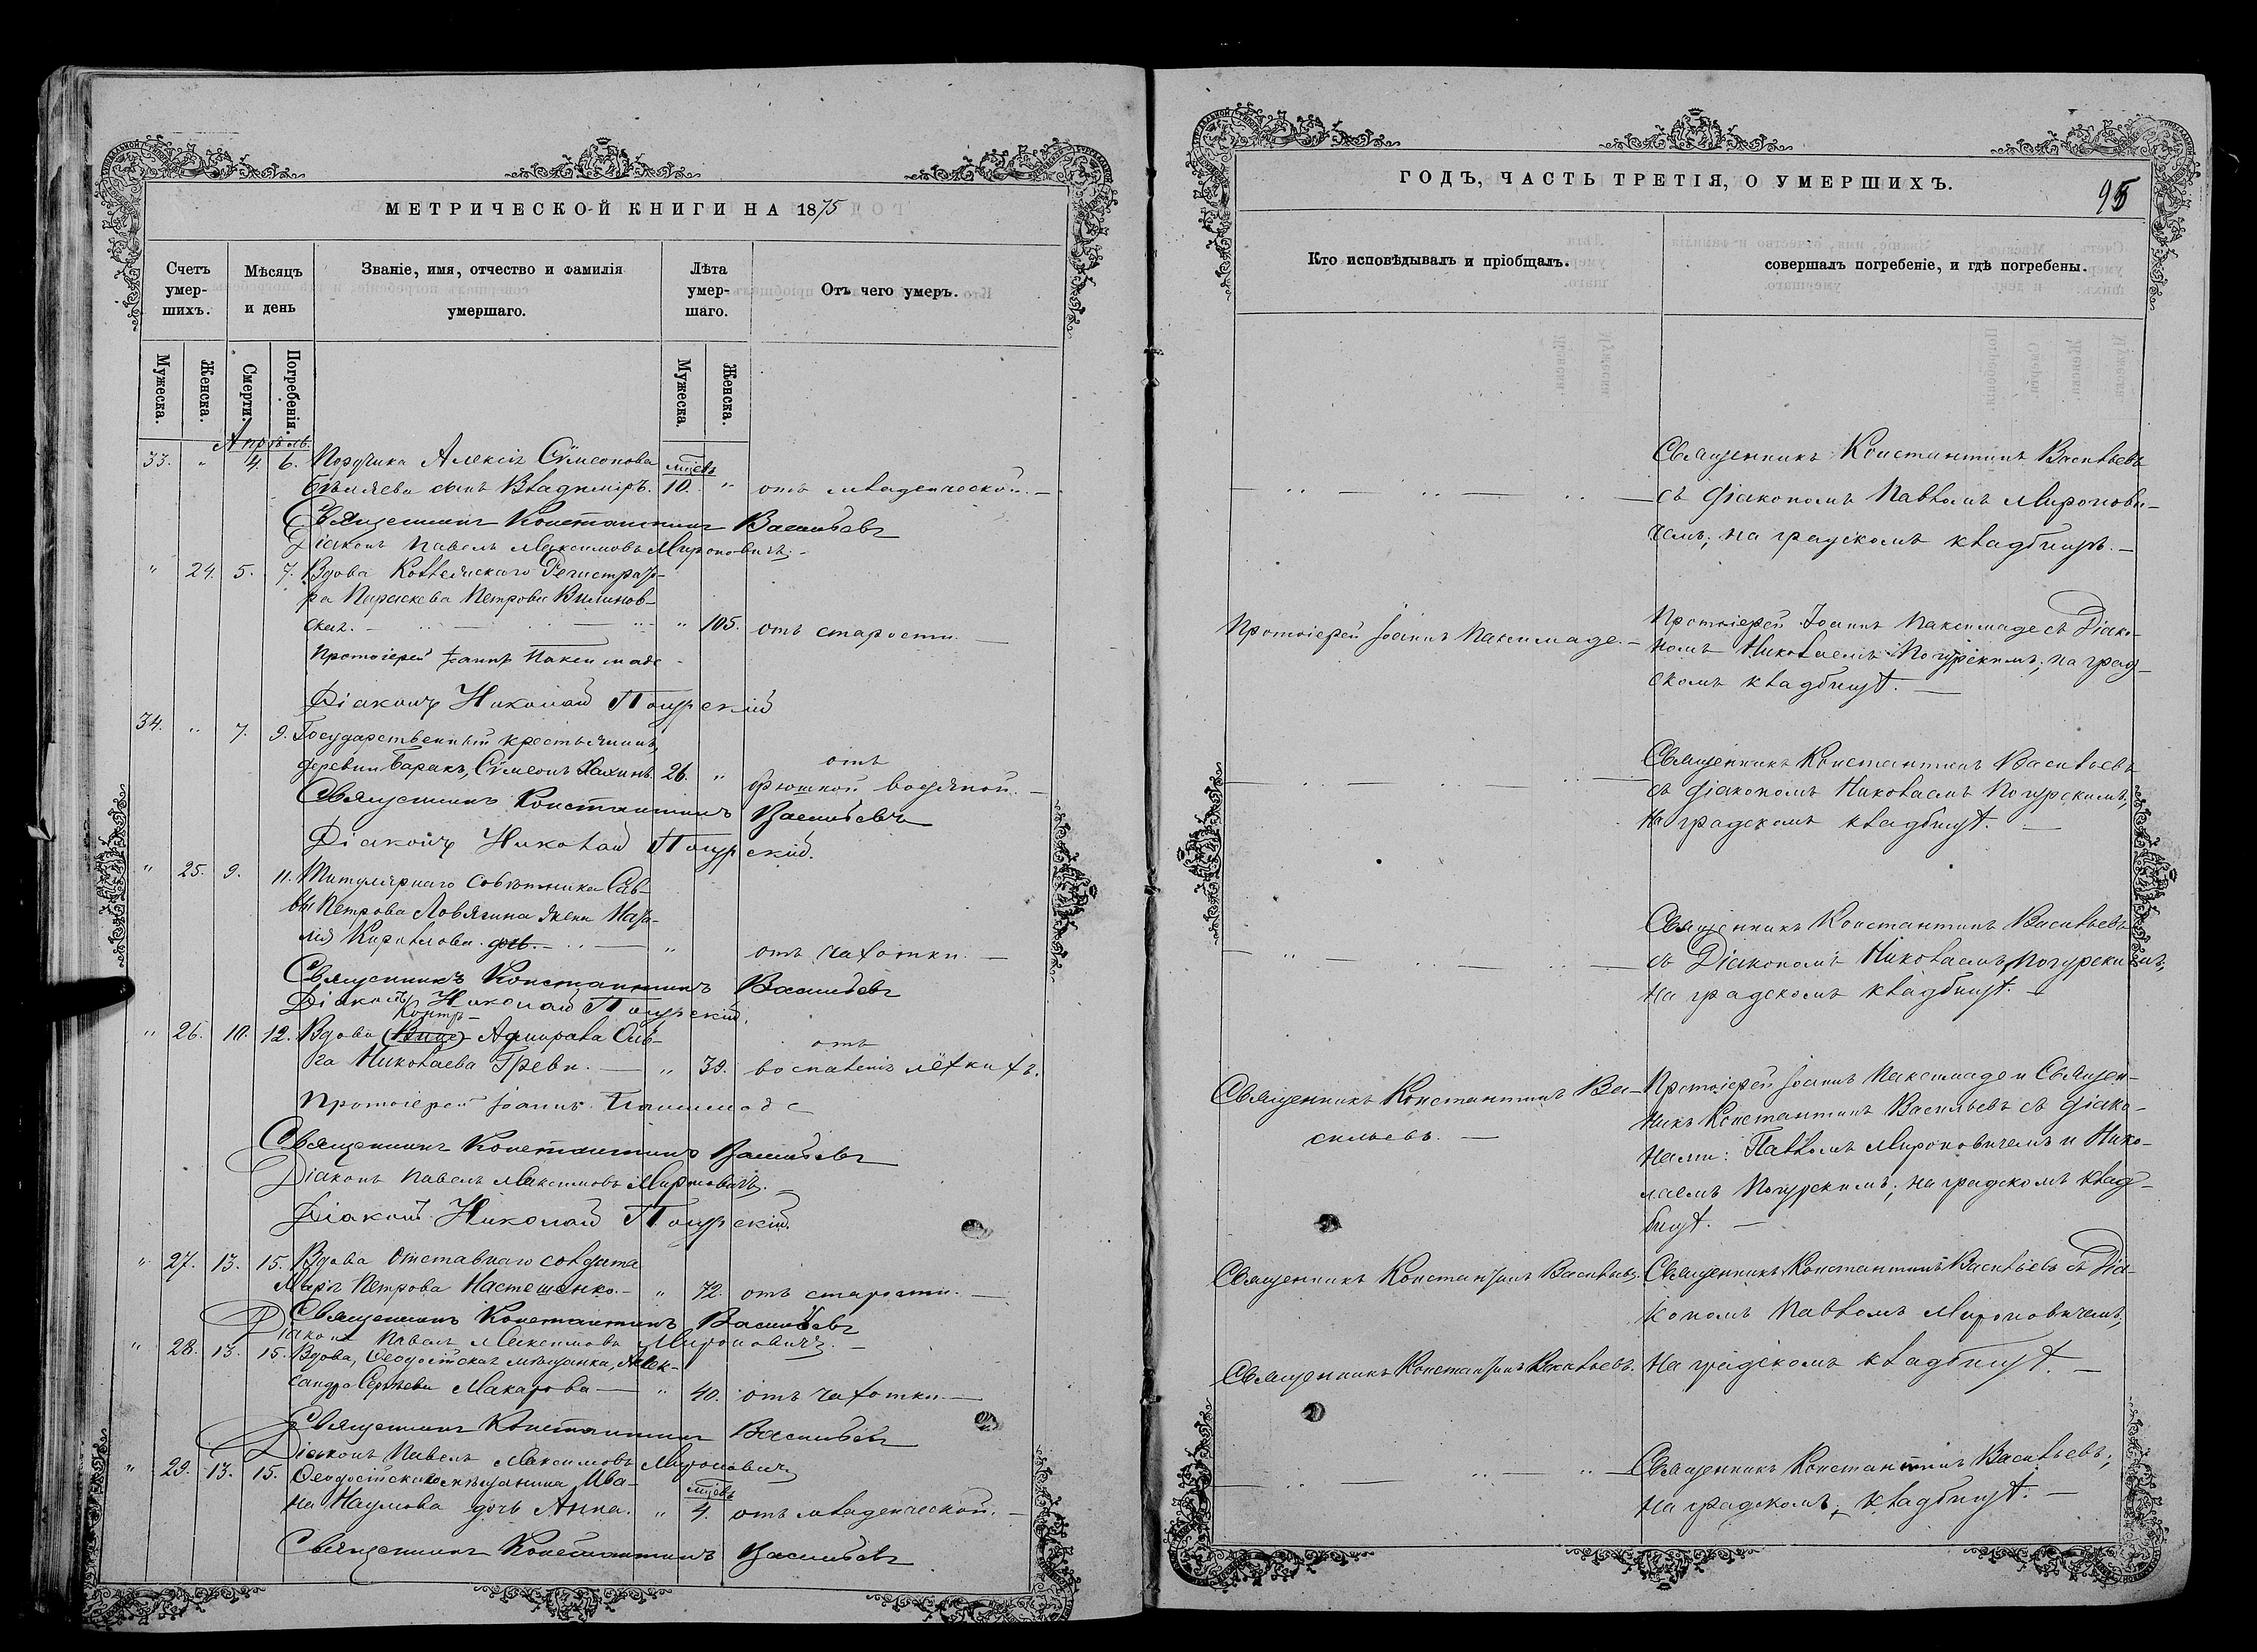 МЕТРИЧЕСКОЙ КНИГИ НА 1875
Счетъ умер-шихъ.
Мѣсяцъ и день
Званіе, имя, отчество и фамилія умершаго.
Лѣта умер-шаго.
Отъ чего умеръ.
Мужеска.
Женска.
Смерти.
Погребенія.
Мужеска.
Женска.
Апрѣль.
33. " 4. 6. Поручика Алексія Сѵмеонова мцевъ
Бѣляева сынъ Владиміръ. 10. " отъ младенческой. —
Священникъ Константинъ Васильевъ
Діаконъ Павелъ Максимовъ Мироновичъ. —
" 24. 5. 7. Вдова Коллежскаго Регистрато-
ра Параскева Петрова
ская. — " 105. отъ старости. —
Протоіерей Іоаннъ Паксимаде
Діаконъ Николай Погурскій
34. " 7. 9. Государственный крестьянинъ,
деревни Баракъ, Сѵмеонъ 26. " отъ
брюшной водяной. —
Священникъ Константинъ Васильевъ
Діаконъ Николай Погурскій.
" 25. 9. 11. Титулярнаго Совѣтника Сав-
вы Петрова Ловягина жена
Кирилова. — " отъ чахотки. —
Священникъ Константинъ Васильевъ
Діаконъ Николай Погурскій.
Контръ-
" 26. 10. 12. Вдова (Вице) Адмирала Оль-
га Николаева Греве. — " 39. отъ
воспаленія лёгкихъ.
Протоіерей Іоаннъ Паксимаде
Священникъ Константинъ Васильевъ
Діаконъ Павелъ Максимовъ Мироновичъ. —
Діаконъ Николай Погурскій.
" 27. 13. 15. Вдова отставнаго солдата
Марія Петрова Настешенко. — " 72. отъ старости. —
Священникъ Константинъ Васильевъ
Діаконъ Павелъ Максимовъ Мироновичъ. —
" 28. 13. 15. Вдова, Ѳеодосійская мѣщанка, Алек-
сандра Сергѣева Макарова — " 40. отъ чахотки. —
Священникъ Константинъ Васильевъ
Діаконъ Павелъ Максимовъ Мироновичъ
" 29. 13. 15. Ѳеодосійскаго мѣщанина Ива- мцевъ
на Наумова дочь Анна. " 4. отъ младенческой. —
Священникъ Константинъ Васильевъ
ГОДЪ, ЧАСТЬ ТРЕТІЯ, О УМЕРШИХЪ.
95
Кто исповѣдывалъ и пріобщалъ.
совершалъ погребеніе, и гдѣ погребены.
Священникъ Константинъ Васильевъ
съ діакономъ Павломъ Миронови-
чемъ; на градскомъ кладбищѣ. —
Протоіерей Іоаннъ Паксимаде. —
Протоіерей Іоаннъ Паксимаде съ Діако-
номъ Николаемъ Погурскимъ; на град-
скомъ кладбищѣ. —
Священникъ Константинъ Васильевъ
съ діакономъ Николаемъ Погурскимъ;
на градскомъ кладбищѣ. —
Священникъ Константинъ Васильевъ
съ Діакономъ Николаемъ Погурскимъ;
на градскомъ кладбищѣ. —
Священникъ Константинъ Ва-
сильевъ. —
Протоіерей Іоаннъ Паксимаде и Священ-
никъ Константинъ Васильевъ съ діако-
нами: Павломъ Мироновичемъ и Нико-
лаемъ Погурскимъ; на градскомъ клад-
бищѣ. —
Священникъ Константинъ Васильевъ.
Священникъ Константинъ Васильевъ съ Діа-
кономъ Павломъ Мироновичемъ;
Священникъ Константинъ Васильевъ.
на градскомъ кладбищѣ. —
Священникъ Константинъ Васильевъ;
на градскомъ кладбищѣ. —